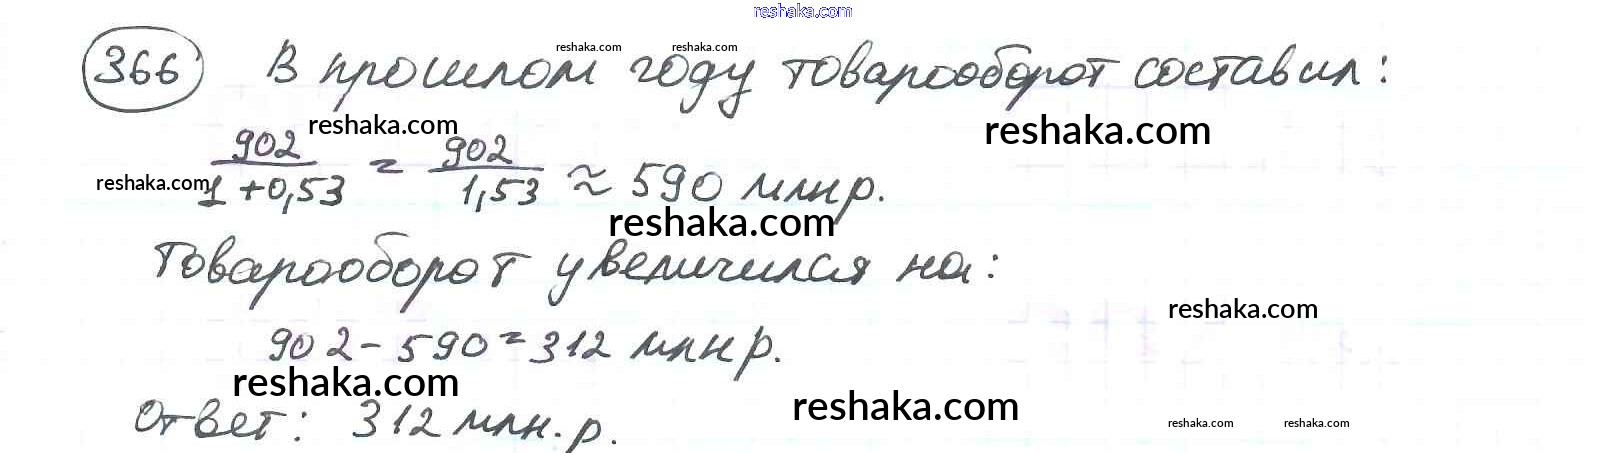 reshaka.com
366 В прошлом году товарооборот составил:
reshaka.com reshaka.com
reshaka.com reshaka.com
902/(1+0,53) = 902/1,53 ≈ 590 млн р.
reshaka.com
reshaka.com
Товарооборот увеличился на:
reshaka.com
902 - 590 = 312 млн р.
reshaka.com
reshaka.com
Ответ: 312 млн. р.
reshaka.com reshaka.com